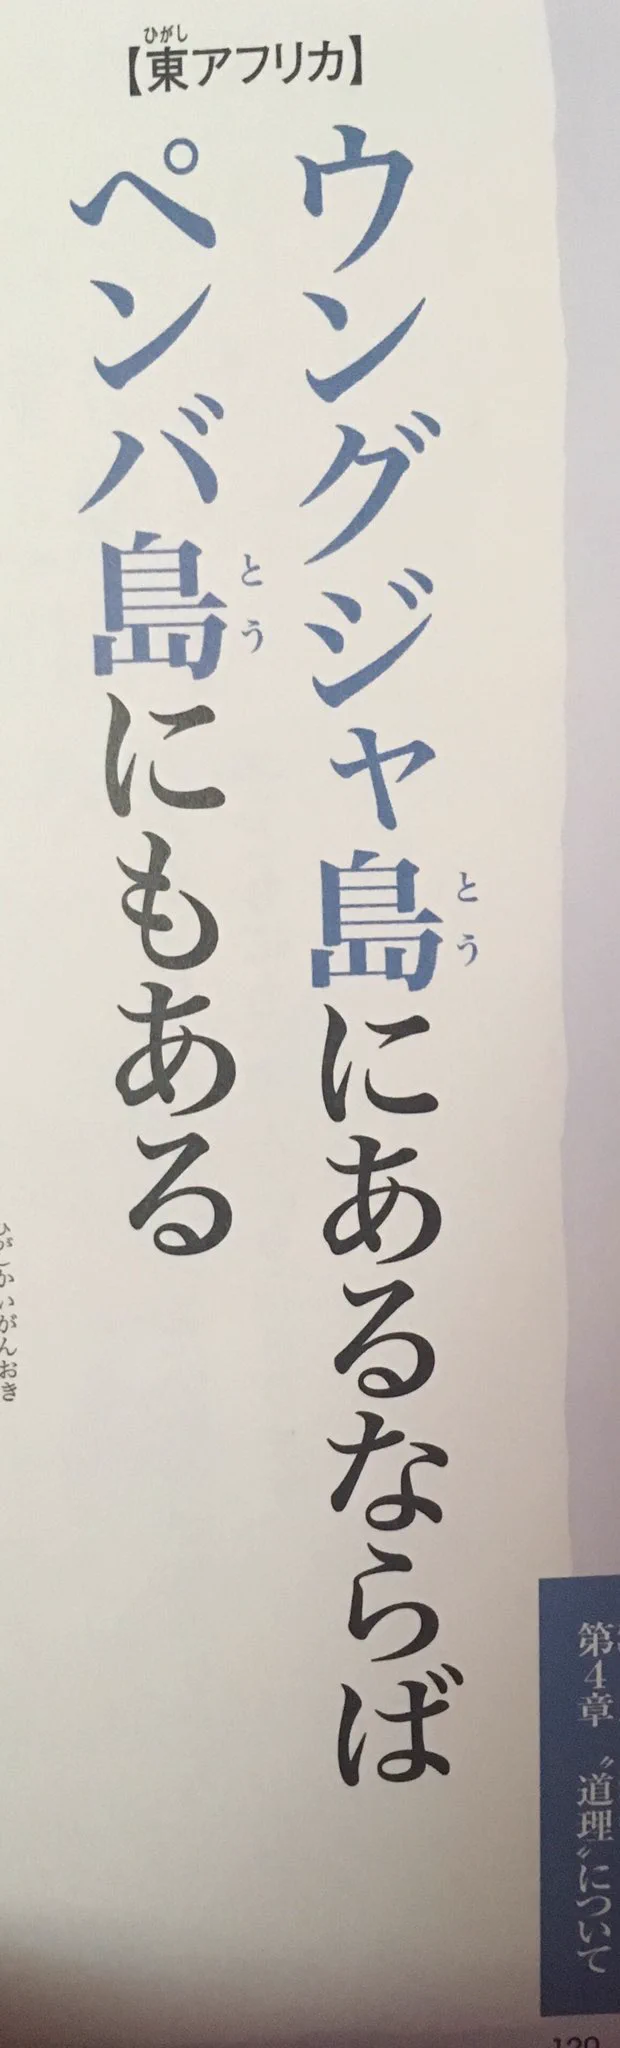 【東アフリカ】
ひがし
ウングジャ島にあるならば
とう
ペンバ島にもある
とう
ひがしかいがんおき
第4章 〝道理〟について